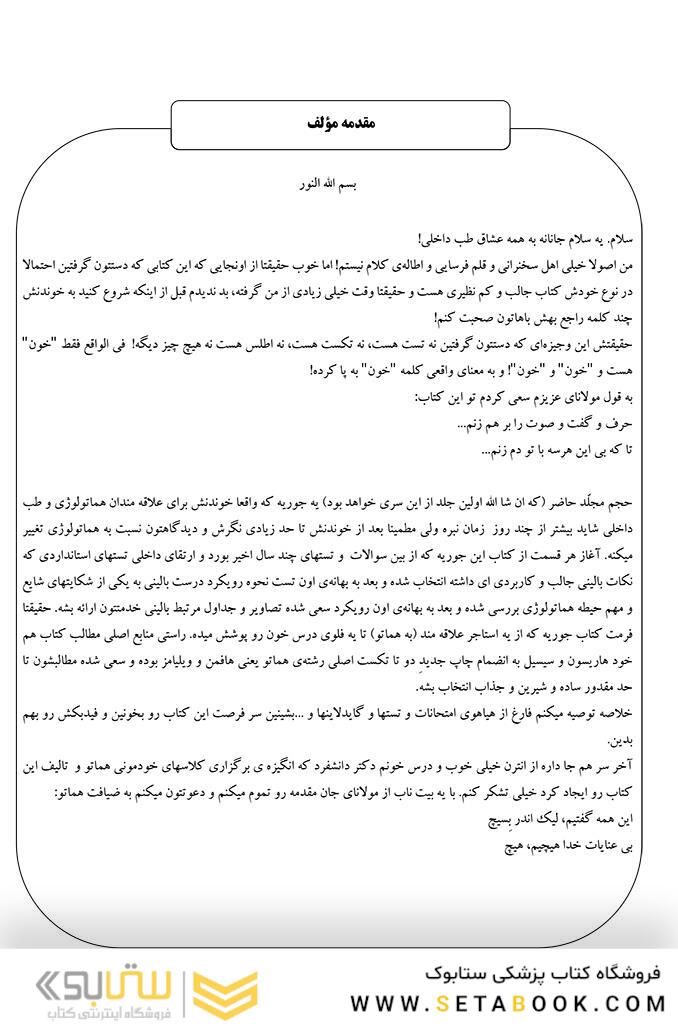 مقدمه مؤلف
بسم الله النور
سلام. یه سلام جانانه به همه عشاق طب داخلی!
من اصولا خیلی اهل سخنرانی و قلم فرسایی و اطاله‌ی کلام نیستم! اما خوب حقیقتا از اونجایی که این کتابی که دستتون گرفتین احتمالا
در نوع خودش کتاب جالب و کم نظیری هست و حقیقتا وقت خیلی زیادی از من گرفته، بد ندیدم قبل از اینکه شروع کنید به خوندنش
چند کلمه راجع بهش باهاتون صحبت کنم!
حقیقتش این وجیزه‌ای که دستتون گرفتین نه تست هست، نه تکست هست، نه اطلس هست نه هیچ چیز دیگه! فی الواقع فقط "خون"
هست و "خون" و "خون"! و به معنای واقعی کلمه "خون" به پا کرده!
به قول مولانای عزیزم سعی کردم تو این کتاب:
حرف و گفت و صوت را بر هم زنم...
تا که بی این هرسه با تو دم زنم...
حجم مجلّد حاضر (که ان شا الله اولین جلد از این سری خواهد بود) یه جوریه که واقعا خوندنش برای علاقه مندان هماتولوژی و طب
داخلی شاید بیشتر از چند روز زمان نبره ولی مطمینا بعد از خوندنش تا حد زیادی نگرش و دیدگاهتون نسبت به هماتولوژی تغییر
میکنه. آغاز هر قسمت از کتاب این جوریه که از بین سوالات و تستهای چند سال اخیر بورد و ارتقای داخلی تستهای استانداردی که
نکات بالینی جالب و کاربردی ای داشته انتخاب شده و بعد به بهانه‌ی اون تست نحوه رویکرد درست بالینی به یکی از شکایتهای شایع
و مهم حیطه هماتولوژی بررسی شده و بعد به بهانه‌ی اون رویکرد سعی شده تصاویر و جداول مرتبط بالینی خدمتتون ارائه بشه. حقیقتا
فرمت کتاب جوریه که از یه استاجر علاقه مند (به هماتو) تا یه فلوی درس خون رو پوشش میده. راستی منابع اصلی مطالب کتاب هم
خود هاریسون و سیسیل به انضمام چاپ جدیدِ دو تا تکست اصلی رشته‌ی هماتو یعنی هافمن و ویلیامز بوده و سعی شده مطالبشون تا
حد مقدور ساده و شیرین و جذاب انتخاب بشه.
خلاصه توصیه میکنم فارغ از هیاهوی امتحانات و تستها و گایدلاینها و ...بشینین سر فرصت این کتاب رو بخونین و فیدبکش رو بهم
بدین.
آخر سر هم جا داره از انترن خیلی خوب و درس خونم دکتر دانشفرد که انگیزه ی برگزاری کلاسهای خودمونی هماتو و تالیف این
کتاب رو ایجاد کرد خیلی تشکر کنم. با یه بیت ناب از مولانای جان مقدمه رو تموم میکنم و دعوتتون میکنم به ضیافت هماتو:
این همه گفتیم، لیک اندر بِسیچ
بی عنایات خدا هیچیم، هیچ
فروشگاه کتاب پزشکی ستابوک
WWW.SETABOOK.COM
ستابوک
فروشگاه اینترنتی کتاب